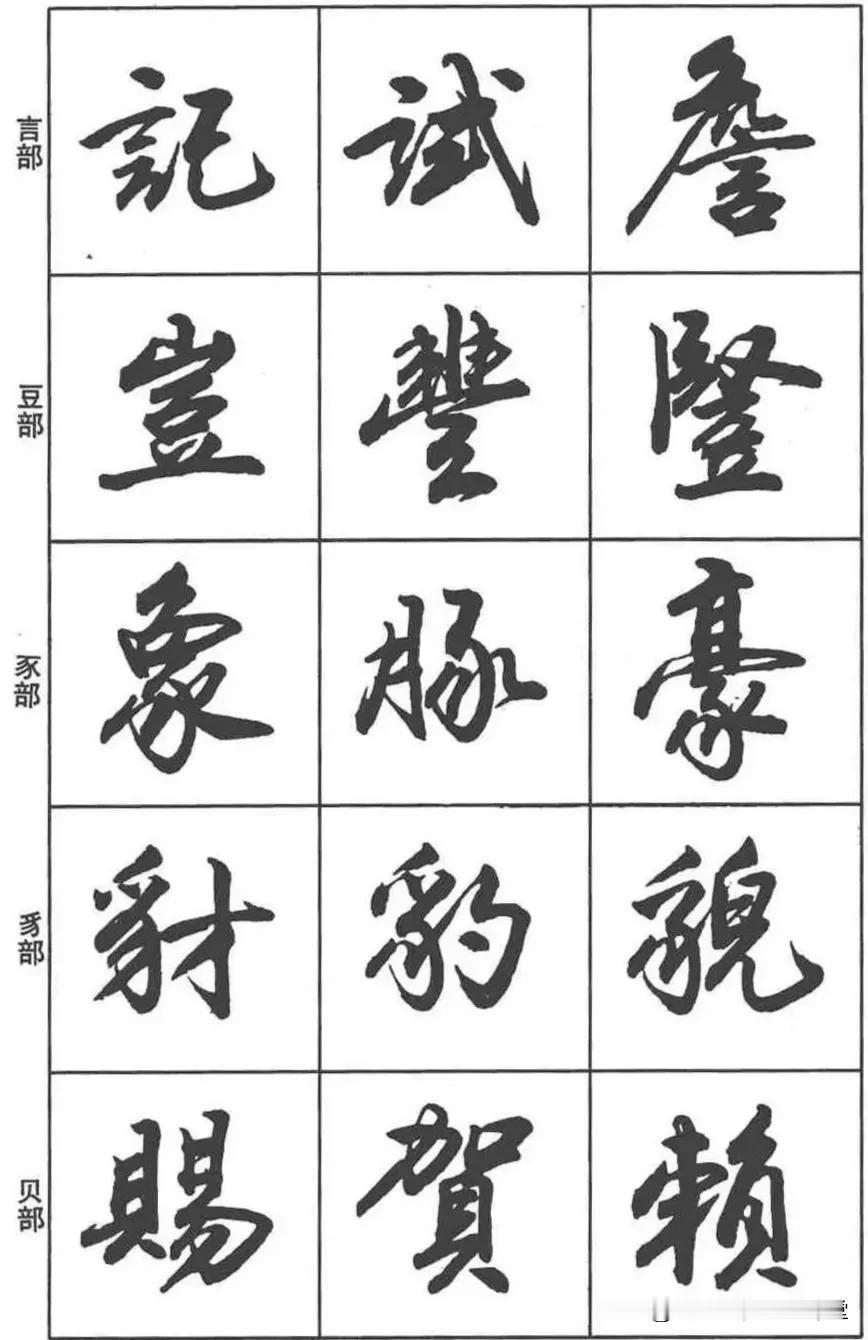 言部 記 試 詹
豆部 豈 豐 豎
豕部 象 豚 豪
豸部 豺 豹 貌
贝部 賜 賀 賴